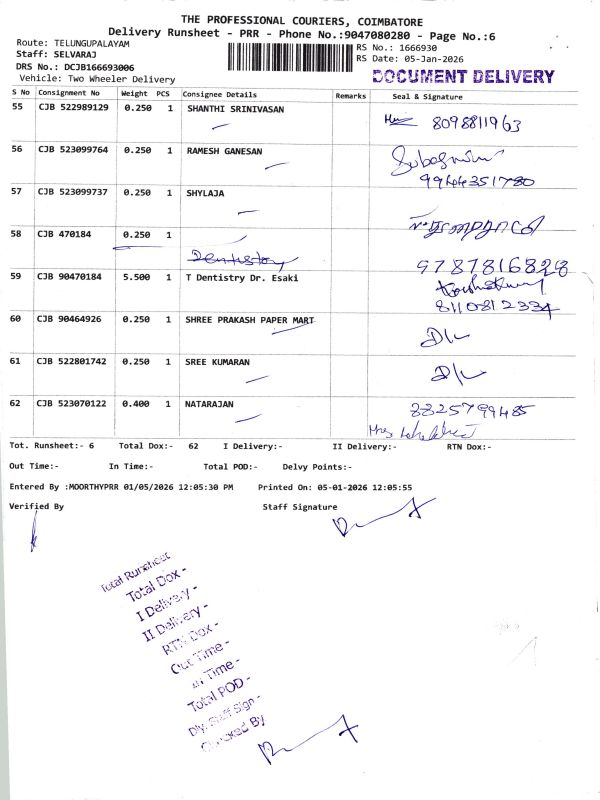 THE PROFESSIONAL COURIERS, COIMBATORE
Delivery Runsheet - PRR - Phone No.:9047080280 - Page No.:6
Route: TELUNGUPALAYAM
Staff: SELVARAJ
DRS No.: DCJB166693006
Vehicle: Two Wheeler Delivery
RS No.: 1666930
RS Date: 05-Jan-2026
DOCUMENT DELIVERY
S No Consignment No Weight PCS Consignee Details Remarks Seal & Signature
55 CJB 522989129 0.250 1 SHANTHI SRINIVASAN 8098811963
56 CJB 523099764 0.250 1 RAMESH GANESAN
9944351780
57 CJB 523099737 0.250 1 SHYLAJA
58 CJB 470184 0.250 1
Dentistry 9787816328
59 CJB 90470184 5.500 1 T Dentistry Dr. Esaki
8110812334
60 CJB 90464926 0.250 1 SHREE PRAKASH PAPER MART D/L
61 CJB 522801742 0.250 1 SREE KUMARAN D/L
62 CJB 523070122 0.400 1 NATARAJAN 8825799485
Tot. Runsheet:- 6 Total Dox:- 62 I Delivery:- II Delivery:- RTN Dox:-
Out Time:- In Time:- Total POD:- Delvy Points:-
Entered By :MOORTHYPRR 01/05/2026 12:05:30 PM Printed On: 05-01-2026 12:05:55
Verified By Staff Signature
Total Runsheet
Total Dox -
I Delivery -
II Delivery -
RTN Dox -
Out Time -
In Time -
Total POD -
Dly. Staff Sign -
Checked By